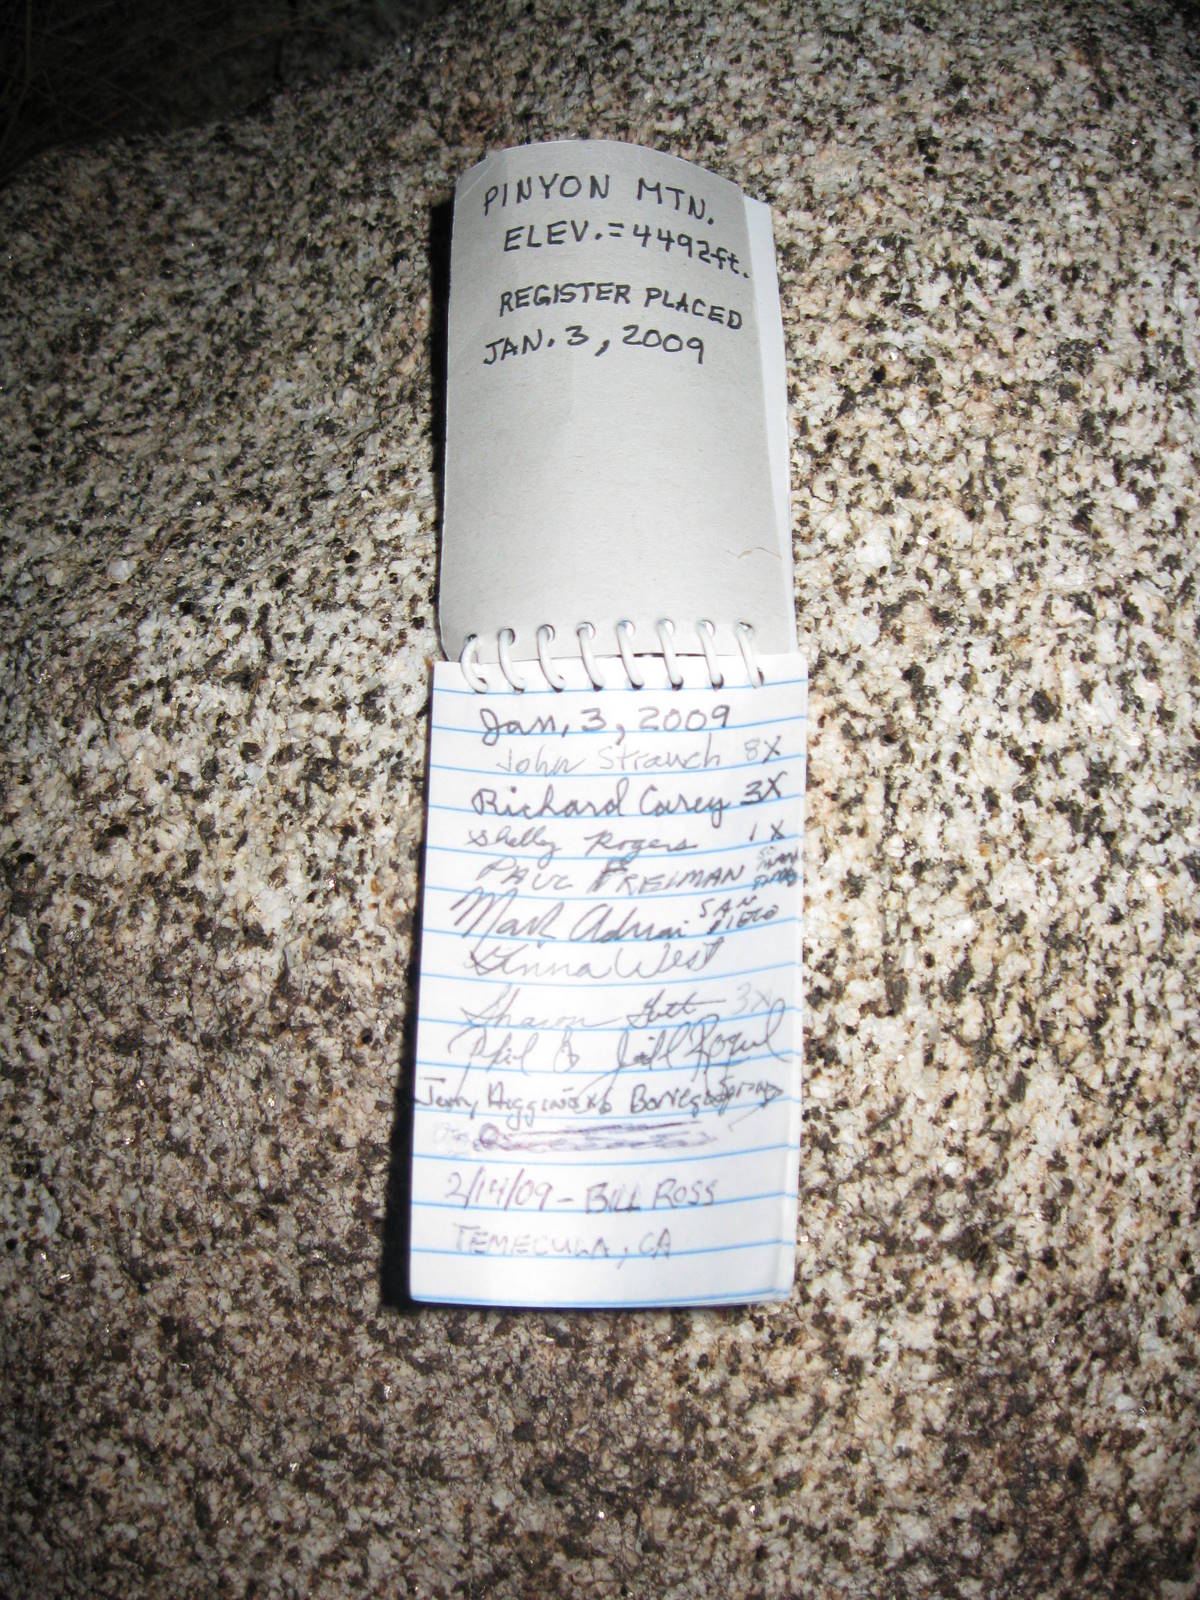 PINYON MTN.
ELEV.=4492ft.
REGISTER PLACED
JAN. 3, 2009
Jan. 3, 2009
John Strauch 8X
Richard Carey 3X
Shelly Rogers 1X
PAUL FREIMAN
Mark Adrian SAN DIEGO
Anna West
Sharon 3X
Phil & Jill
Jerry Higgins Borrego Springs
2/14/09 - BILL ROSS
TEMECULA, CA